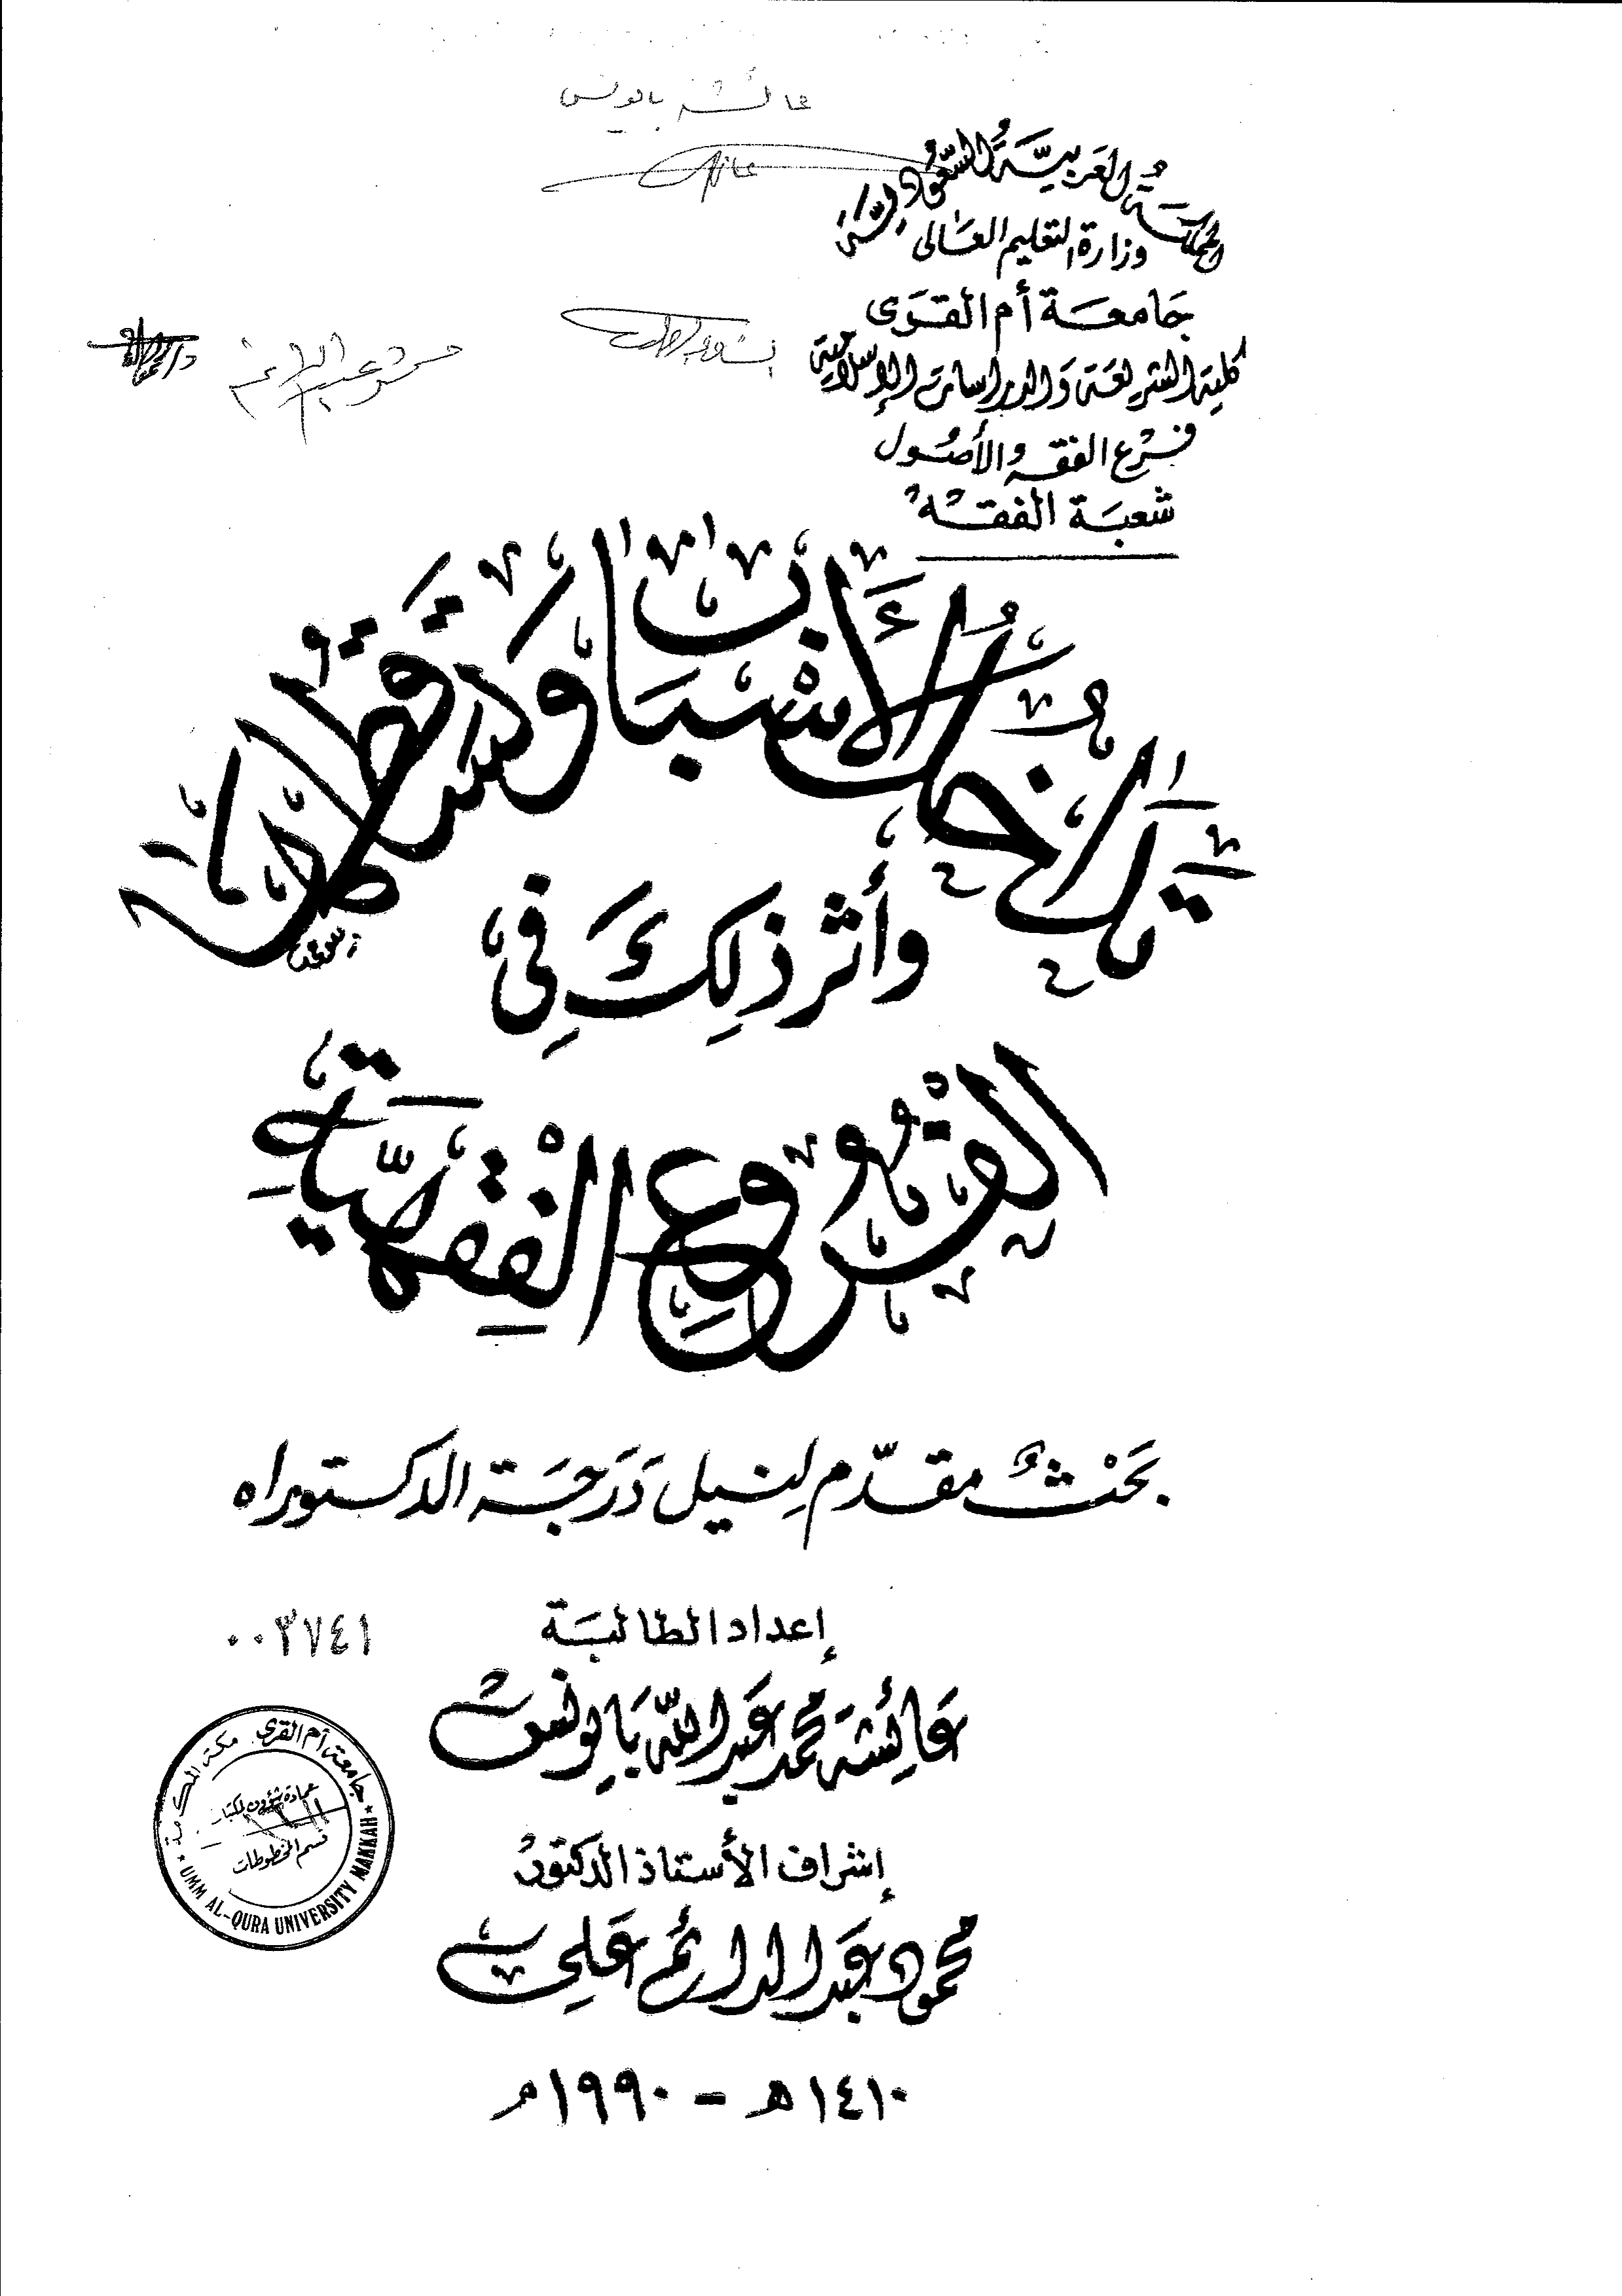 عائشة بايونس
المملكة العربية السعودية
وزارة التعليم العالى
جَامعَة أم القرَى
كلية الشريعة والدراسات الإسلامية
فرع الفقه والأصُول
شعبَة الفقه
تداخل الأسباب وتساقطها
وأثر ذلك في
الفروع الفقهية
بحث مقدّم لنيل دَرجَة الدكتوراه
إعداد الطالبَة
٠٠٣٧٤١
عَائشة محمد عَبد الله بَايونس
إشراف الأستاذ الدكتور
محمود عَبد الدائم عَلي
١٤١٠ هـ - ١٩٩٠م
جامعة أم القرى مكة المكرمة
عمادة شؤون المكتبات
قسم المخطوطات
UMM AL-QURA UNIVERSITY MAKKAH